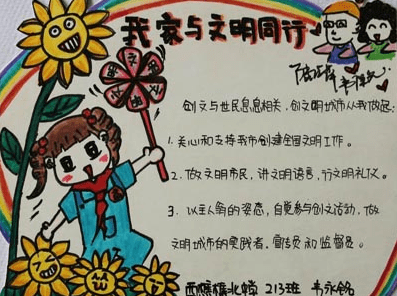 我家与文明同行
创文与世民息息相关，创文明城市从我做起：
1、关心和支持我市创建全国文明工作。
2、做文明市民，讲文明语言，行文明礼仪。
3、以主人翁的姿态，自觉参与创文活动，做
文明城市的实践者，宣传员和监督员。
213班